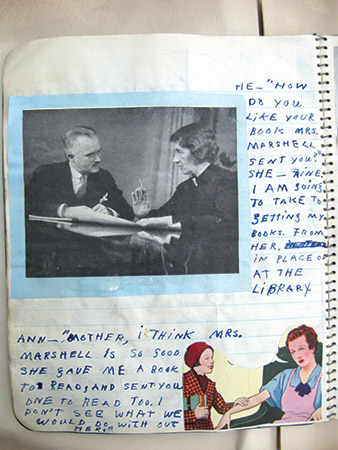 HE — "HOW
DO YOU
LIKE YOUR
BOOK MRS.
MARSHELL
SENT YOU?"
SHE — "FINE,
I AM GOING
TO TAKE TO
GETTING MY
BOOKS. FROM
HER,
IN PLACE OF
AT THE
LIBRARY.
ANN — "MOTHER, I THINK MRS.
MARSHELL IS SO GOOD
SHE GAVE ME A BOOK
TO READ, AND SENT YOU
ONE TO READ TOO. I
DON'T SEE WHAT WE
WOULD DO WITH OUT
HER."